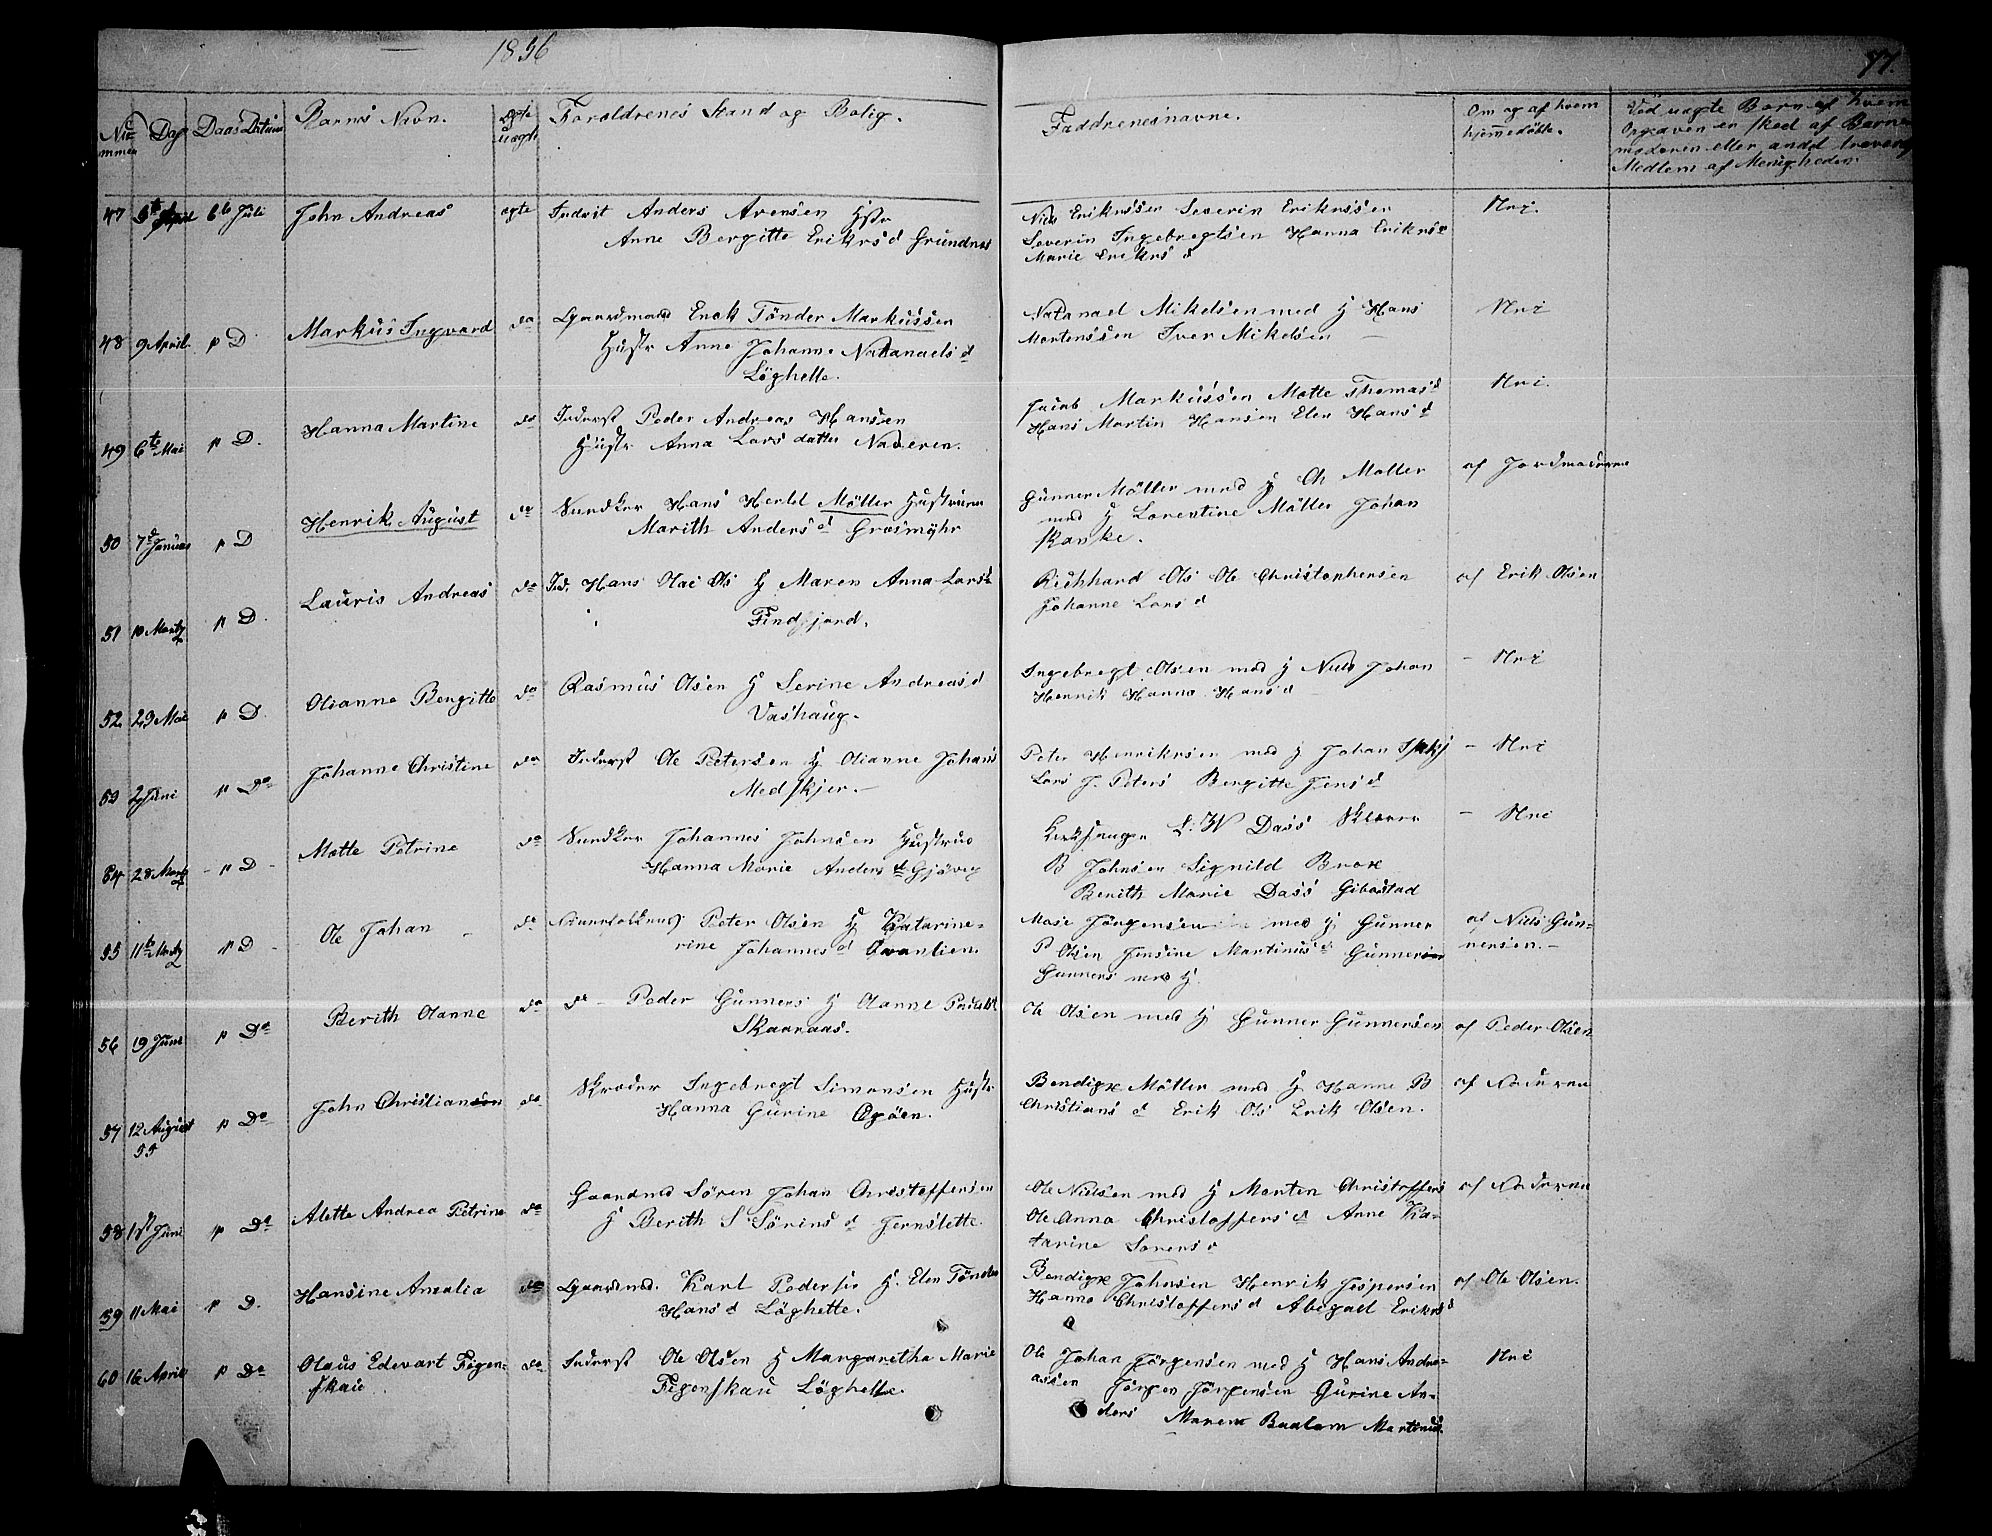 1856
77.
Nummer Dag Daas Datum Barns Navn. ægte uægte Forældrenes Stand og Bolig. Faddrenes navne. Om og af hvem hjemmedøbte.
Ved uægte Barn af hvem
Opgaven en sked af Barne
moderen eller andet
Medlem af Menigheden.
47 April 6te Juli John Andreas ægte Inderst Anders Arensen Hstr
Anne Bergitte Erikrs d Grundnes
Niels Erikrssen Severin Erikrssen
Severin Ingebregtsen Hanna Erikrs d
Marie Erikrs d
Nei.
48 9 April p D. Markus Ingvard do Lgaardmand Enok Tönder Markussen
Hustr Anne Johanne Natanaels d
Löghette.
Natanael Mikelsen med H Hans
Mortenssen Iver Mikelsen
Nei
49 6te Mai p D. Hanna Martine do Inderst Peder Andreas Hansen
Hustr Anna Lars datter Naveren.
Jacob Markussen Mette Thomas d
Hans Martin Hansen Elen Hans d
Nei.
50 7de Januar p D Henrik August do Hans Möller Hustruen
Marith Anders d Grasmyhr
Gunner Möller med H Ch Möller
med H Lorentine Möller Johan
Skanke.
af Jordmoderen
51 10 Marty p D. Lauris Andreas do Ind. Hans Olai Ols H Maren Anna Lars d
Findfjord.
Richhard Ols Ole Christophersen
Johanne Lars d
af Erik Olsen
52 29 Mai p D. Olianna Bergitte do Rasmus Olsen H Serine Andreas d
Vashaug.
Ingebregt Olsen med H Niels Johan
Henrik Hanna Hans d
- Nei
53 2 Juni p Do Johanne Christine do Inderst Ole Petersen H Olianne Johans
Medskjer.
Peter Henrikrsen med H Johan
Lars J. Peters Bergitte Jens d
- Nei
54 28 Marty - p D Mette Petrine do Johannes Johnsen Hustrue
Hanna Marie Anders d Gjövig
Kirksanger L. W Dass
B Johnsen Signild Brox
Berith Marie Dass Gibostad
- Nei
55 11te Marty p D - Ole Johan - do Peter Olsen H Katarine-
rine Johannes d Qvanlien.
Mose Jörgensen med H Gunner
P Olsen Jensine Martinus d Gunner
Gunners med H
af Niels Gun-
nersen. -
56 19 Juni p Do Berith Olanne do do - Peder Gunners H Olanne
Skaanaas.
Ole Olsen med H Gunner Gunnersen
af Peder Olsen
57 12 August p Do John Christian do Skræder Ingebregt Simonsen Hustr
55
Hanna Gurine Öyöen.
Bendigx Möller med H Hanne B
Christians d Erik Ols Erik Olsen.
af
58 1ste Juni p Do Alette Andrea Petrine do Gaardmd Sören Johan Christoffersen
H Berith S Sörens d Jernslette.
Ole Nielsen med H Morten Christoffers
Ole Anna Christoffers d Anne Ka-
tarine Sorens d
af
59 11 Mai p D. Hansine Amalia do Lgaardmd. Karl Pedersen H. Elen Tönder
Hans d Löghette.
Bendigx Johnsen Henrik Jespersen
Hanna Christoffers d Abegael Erikrs d
af Ole Olsen.
60 16 April p Do Olaus Edevart Figen- do Inderst Ole Olsen H Margaretha Marie
skau
Figenskau Löghette.
Ole Johan Jörgensen med H Hans Andre-
assen Jörgen Jörgensen Gurine An-
ders Maren Martinus.
Nei